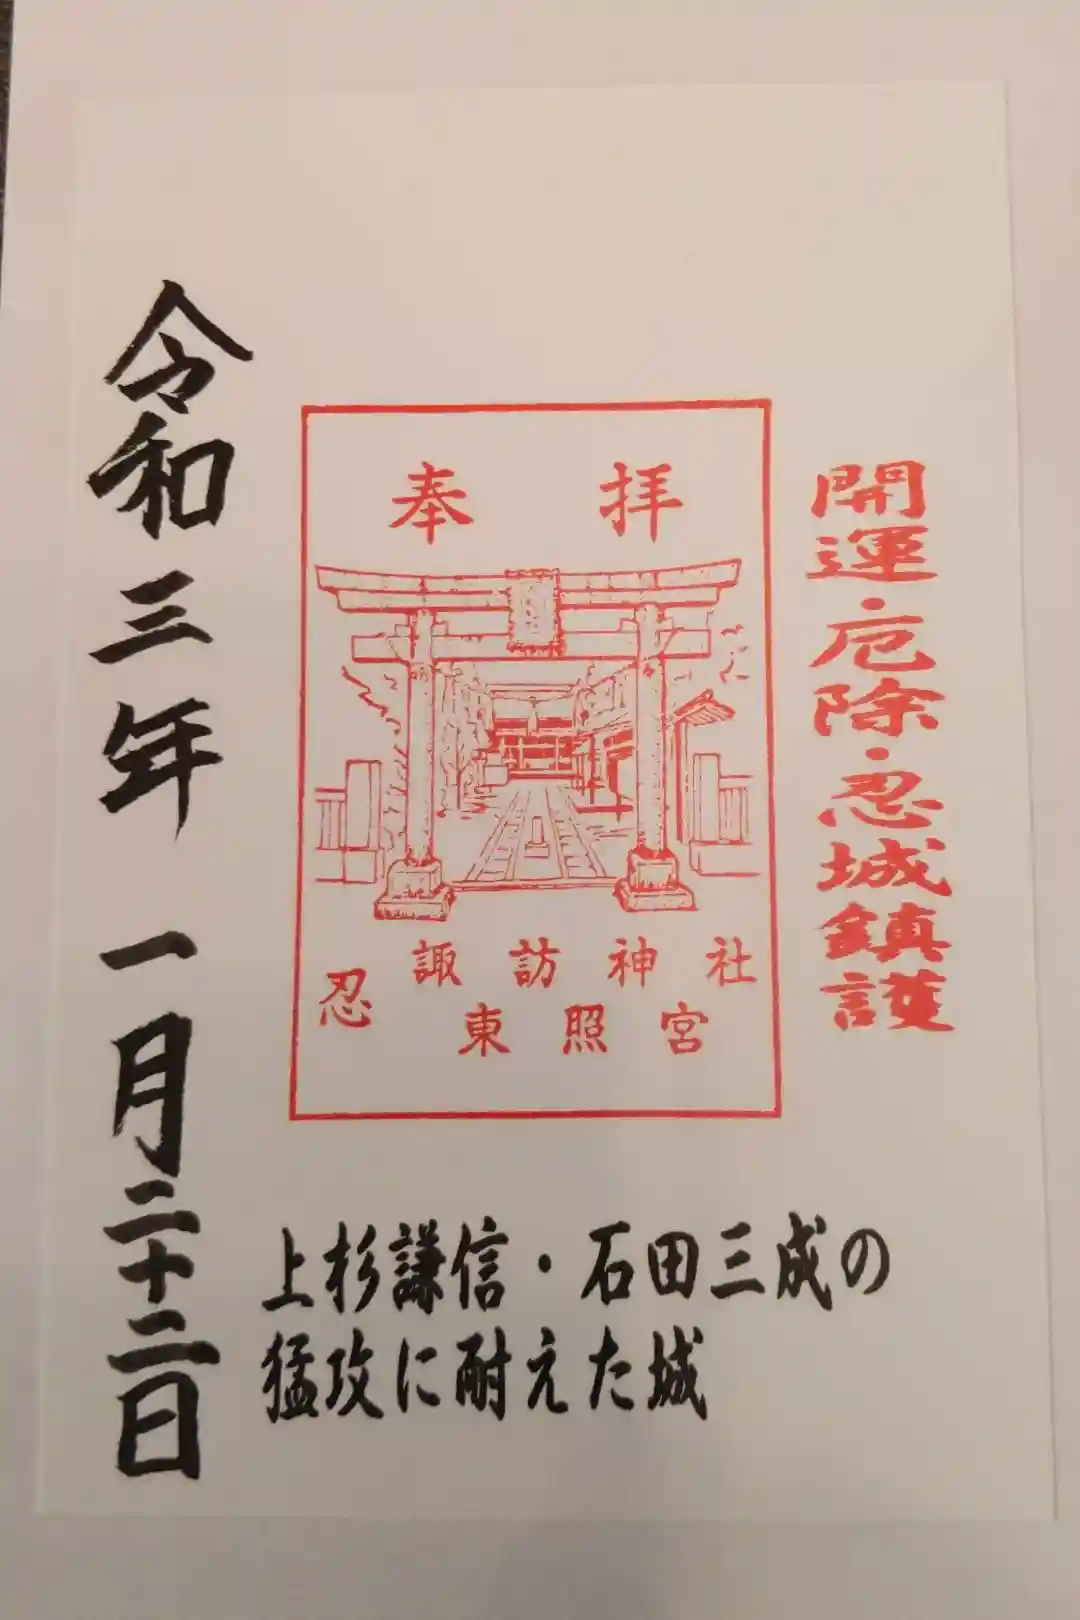 開運・厄除・忍城鎮護
奉拝
諏訪神社
忍
東照宮
令和三年 一月二十二日
上杉謙信・石田三成の
猛攻に耐えた城